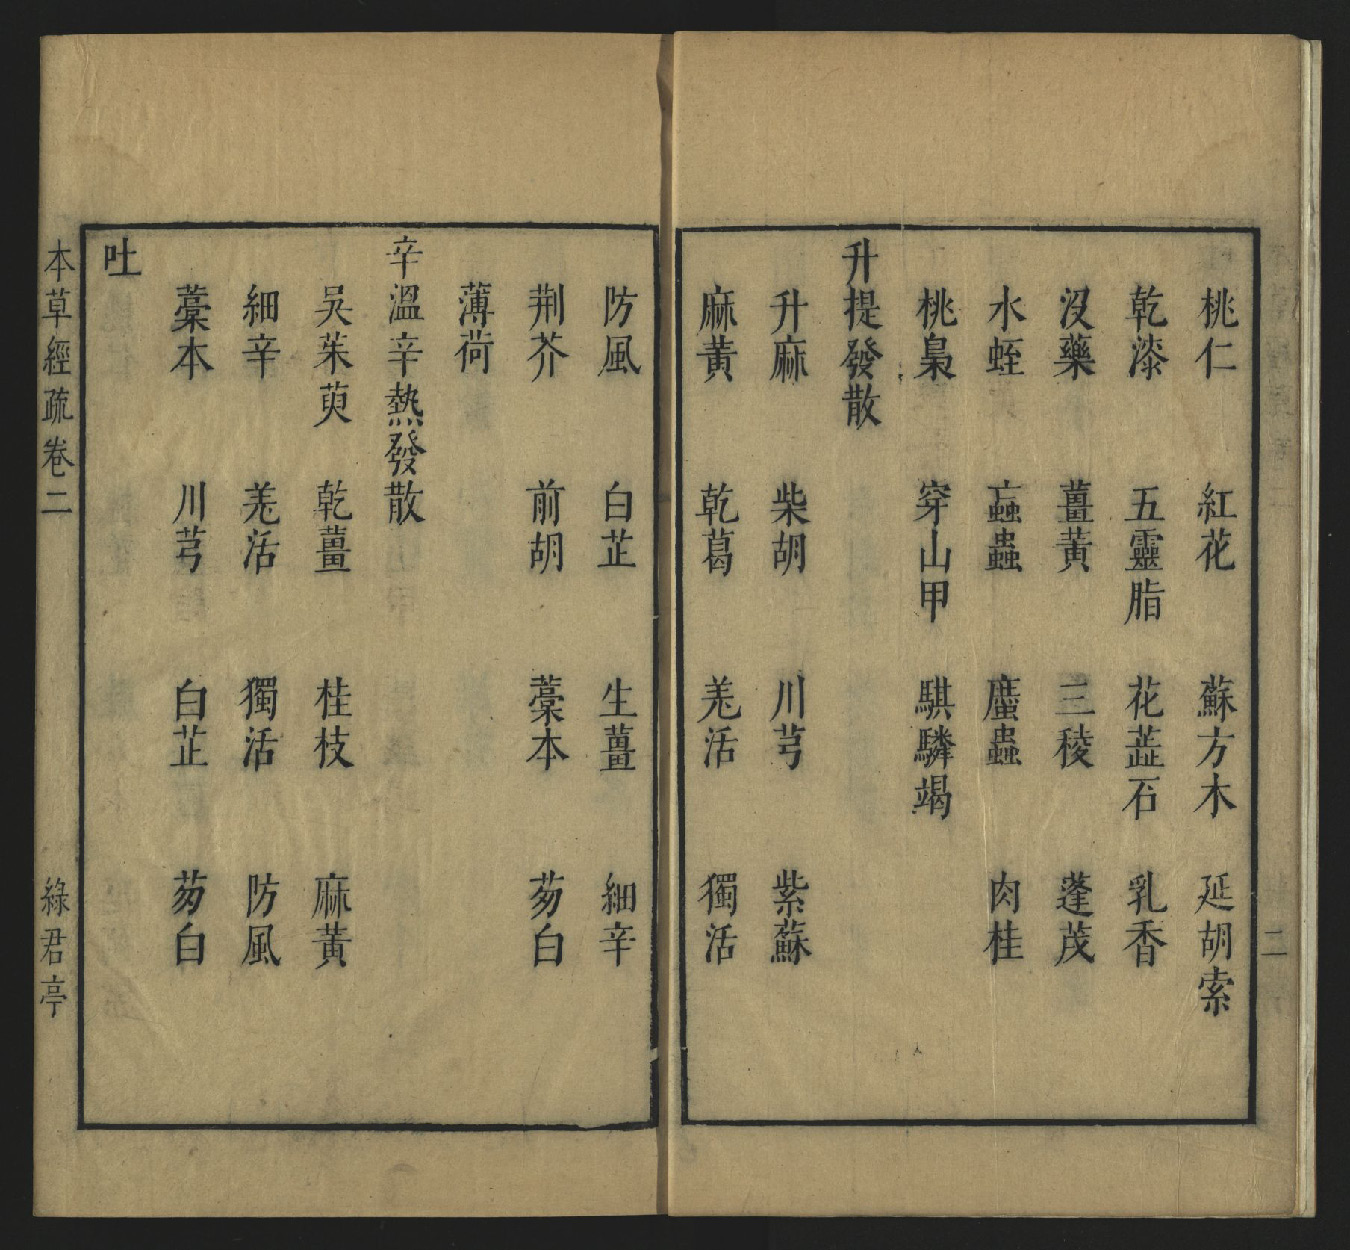 桃仁 紅花 蘇方木 延胡索
乾漆 五靈脂 花蕋石 乳香
沒藥 薑黃 三稜 蓬茂
水蛭 蝱蟲 䗪蟲 肉桂
桃梟 穿山甲 騏驎竭
升提發散
升麻 柴胡 川芎 紫蘇
麻黃 乾葛 羌活 獨活
防風 白芷 生薑 細辛
荆芥 前胡 藁本 芴白
薄荷
辛溫辛熱發散
吳茱萸 乾薑 桂枝 麻黃
細辛 羌活 獨活 防風
藁本 川芎 白芷 芴白
吐
本草經疏卷二 綠君亭
二